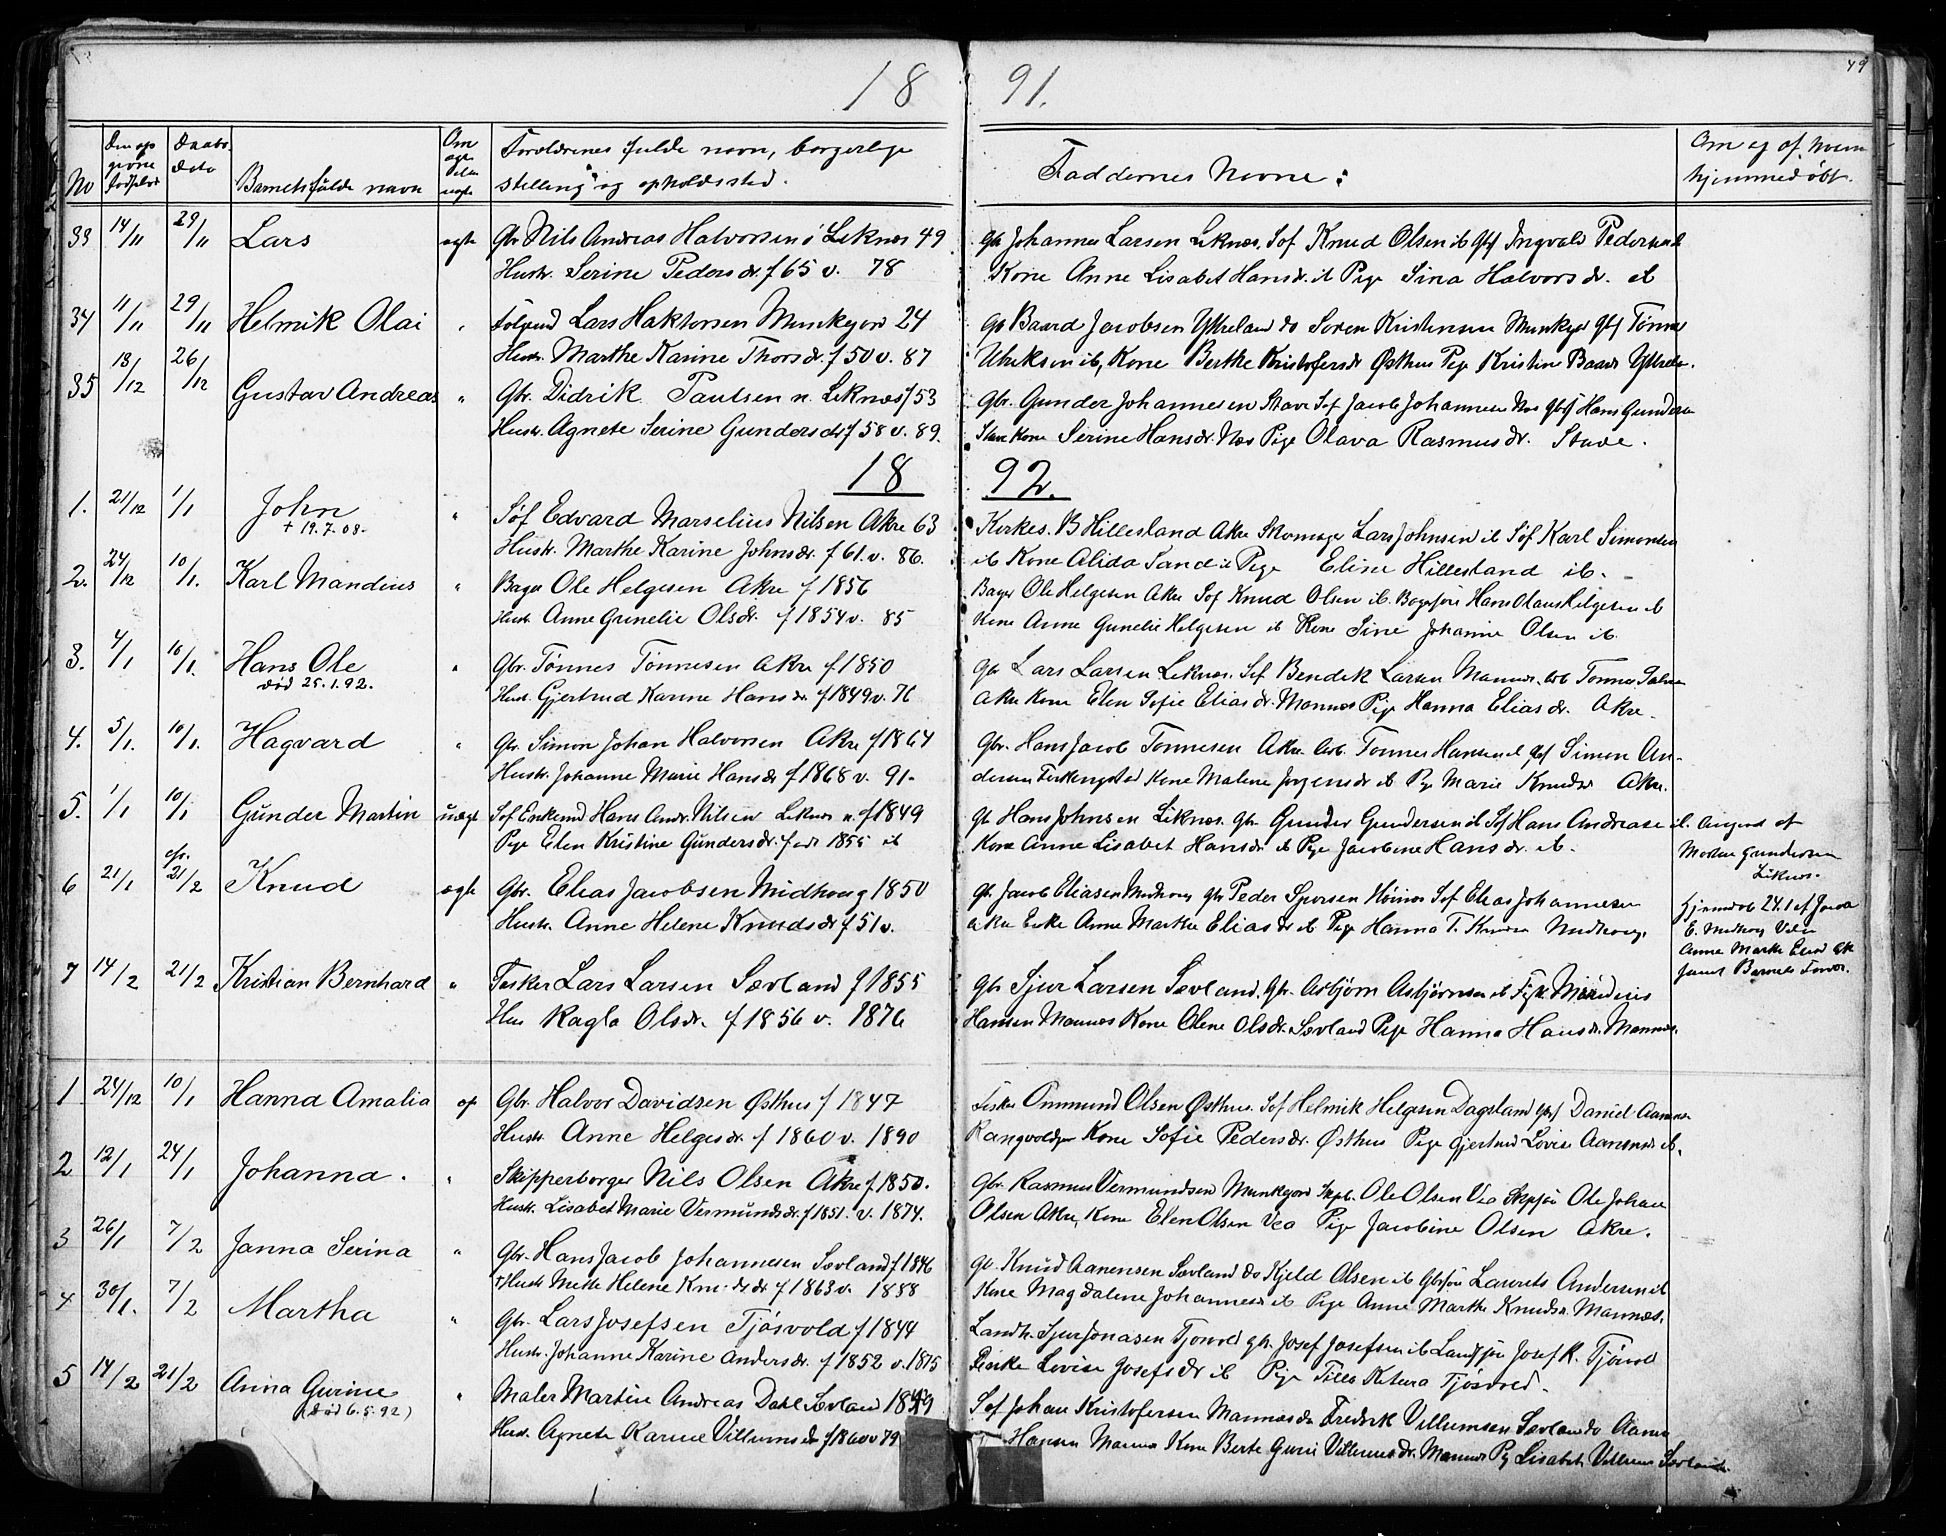 18 91.
49
No
Den op givne fødselsd
Daabs Dato
Barnets fulde navn
Om ægte eller uægte
Forældrenes fulde navn, borgerlige
stilling og opholdssted.
Faddernes Navne:
Om og af hvem
hjemmedøbt.
33 14/11 29/11 Lars ægte Gbr Nils Andreas Halvorsen Liknes 49
Hustr. Serine Pedersdr. f 65 v. 78
Gbr Johannes Larsen Liknes. Søf Knud Olsen ib Gbsf Ingvald Pedersen ib
Kone Anne Lisabet Hansdr. ib Pige Sina Halvorsdr. ib
34 11/11 29/11 Helmik Olai " Lars Haktorsen Munkejord 24
Hustr. Marthe Karine Thorsdr. f 50 v. 87
Gb Baard Jacobsen Ytreland do Soren Kristensen Munkejor Gbsf Tønnes
ib, Kone Berthe Kristofersdr Østhus Pige Kristin Baards Ytrela
35 13/12 26/12 Gustav Andreas " Gbr. Didrik Paulsen n. Liknes f 53
Hustr. Agnete Serine Gundersdr f 58 v. 89.
Gbr. Gunder Johannesen Stave Søf Jacob Johannesen Nes gbsf Hans Gunders
Stave Kone Serine Hansdr. Nes Pige Olava Rasmusdr. Stave.
18 92.
1. 21/12 1/1 John " Søf Edvard Marselius Nilsen Akre 63
+ 19.7.08.
Hustr. Marthe Karine Johnsdr. f 61. v. 86.
Kirkes. B Hillesland Akre Skomager Lars Johnsen ib Søf Karl Simonsen
ib Kone Alida Sand ib Pige Elise Hillesland ib.
2. 24/12 10/1. Karl Mandius " Bager Ole Helgesen Akre f 1856
Hustr. Anne Gunelie Olsdr. f 1854 v. 85
Bager Ole Helgesen Akre Søf Knud Olsen ib. Hans Olaus Helgesen ib
Kone Anne Gunelie Helgesen ib Kone Sine Johanne Olsen ib.
3. 4/1 10/1. Hans Ole " Gbr. Tønnes Tønnesen Akre f 1850
død 25.1.92.
Hust. Gjertrud Karine Hansdr. f 1849 v. 76
Gbr Lars Larsen Liknes. Søf Bendik Larsen Mannes. Arb Tønnes
Akre Kone Elen Sofie Eliasdr. Mannes Pige Hanna Eliasdr. Akre.
4. 5/1. 10/1. Hagvard " Gbr. Simon Johan Halvorsen Akre f 1864
Hustr. Johanne Marie Hansdr f 1868 v. 91.
Gbr. Hans Jacob Tønnesen Akre Arb. Tønnes Hansen ib gbsf Simon An-
dersen Ferkingstad Kone Malene Jørgensdr ib Pige Marie Knudsdr Akre.
5. 1/1 10/1 Gunder Martin uægt Søf Enkemd Hans Andr. Nilsen Liknes n. f 1849
Pige Elen Kristine Gundersdr. født 1855 ib
Gb Hans Johnsen Liknes. Gbr. Gunder Gundersen ib Søf Hans Andreas ib.
Kone Anne Lisabet Hansdr ib Pige Jacobine Hansdr. ib.
Angivd af
Morten Gundersen
Liknes.
6 21/1 21/2 Knud ægte Gbr. Elias Jacobsen Midhoug 1850
Hustr. Anne Helene Knudsdr f 51 v.
Gb. Jacob Eliasen Midhoug Gbr Peder Sjursen Høines Søf Elias Johannesen
Akre Enke Anne Marthe Eliasdr ib Pige Hanna T. Midhoug.
Hjemdøb 24.1 af Jacob
E. Midhoug
Anne Marthe
samt Barnets
7 14/2 21/2 Kristian Bernhard " Fisker Lars Larsen Sævland f 1855
Hus Ragla Olsdr. f 1856 v. 1876
Gbr Sjur Larsen Sævland. Gbr. Asbjørn Asbjørnsen ib Fisk. Mandius
Hansen Mannes Kone Olene Olsdr. Sævland Pige Hanna Hansdr. Mannes.
1 24/12 10/1 Hanna Amalia op Gbr. Halvor Davidsen Østhus f 1847
Hustr. Anne Helgesdr. f 1860 v. 1890
Fisker Ommund Olsen Østhus. Søf Helmik Helgesen Dagsland gbsf Daniel Aanens
Kone Sofie Pedersdr. Østhus Pige Gjertrud Lovise Aanensdr ib.
2 12/1 24/1 Johanna. " Skipperborger Nils Olsen Akre f. 1850.
Hustr. Lisabet Marie Vermundsdr. f 1851. v. 1874.
Gbr. Rasmus Vermundsen Munkejord Ole Olsen Vea Ole Johan
Olsen Akre, Kone Elen Olsen Vea Pige Jacobine Olsen Akre.
3 26/1 7/2 Janna Serina " Gbr. Hans Jacob Johannesen Sævland f 1846
Hustr Mette Helene Knudsdr f 1863 v. 1888
Gb. Knud Aanensen Sævland do Kjeld Olsen ib Laurits Andersen ib
Kone Magdalene Johannesdr ib Pige Anne Marthe Knudsdr. Mannes.
4 30/1. 7/2 Martha " Gbr. Lars Josefsen Tjøsvold f 1844
Hustr. Johanne Karine Andersdr. f 1852 v. 1875
Landh. Sjur Jonasen Tjøsvol gbr. Josef Josefsen ib Josef K. Tjøsvol
Lovise Josefsdr ib Pige Tjøsvold.
5 14/2 21/2 Anna Gurine " Maler Martin Andreas Dahl Sævland 1849
(død 6.5.92)
Hust. Agnete Karine Villumsdr f 1860 v 79
Søf Johan Kristofersen Mannes do Fredrik Villumsen Sævland do Aanen
Hansen Mannes Kone Berte Guri Villumsdr. Mannes Pig Lisabet Villums Sævland.